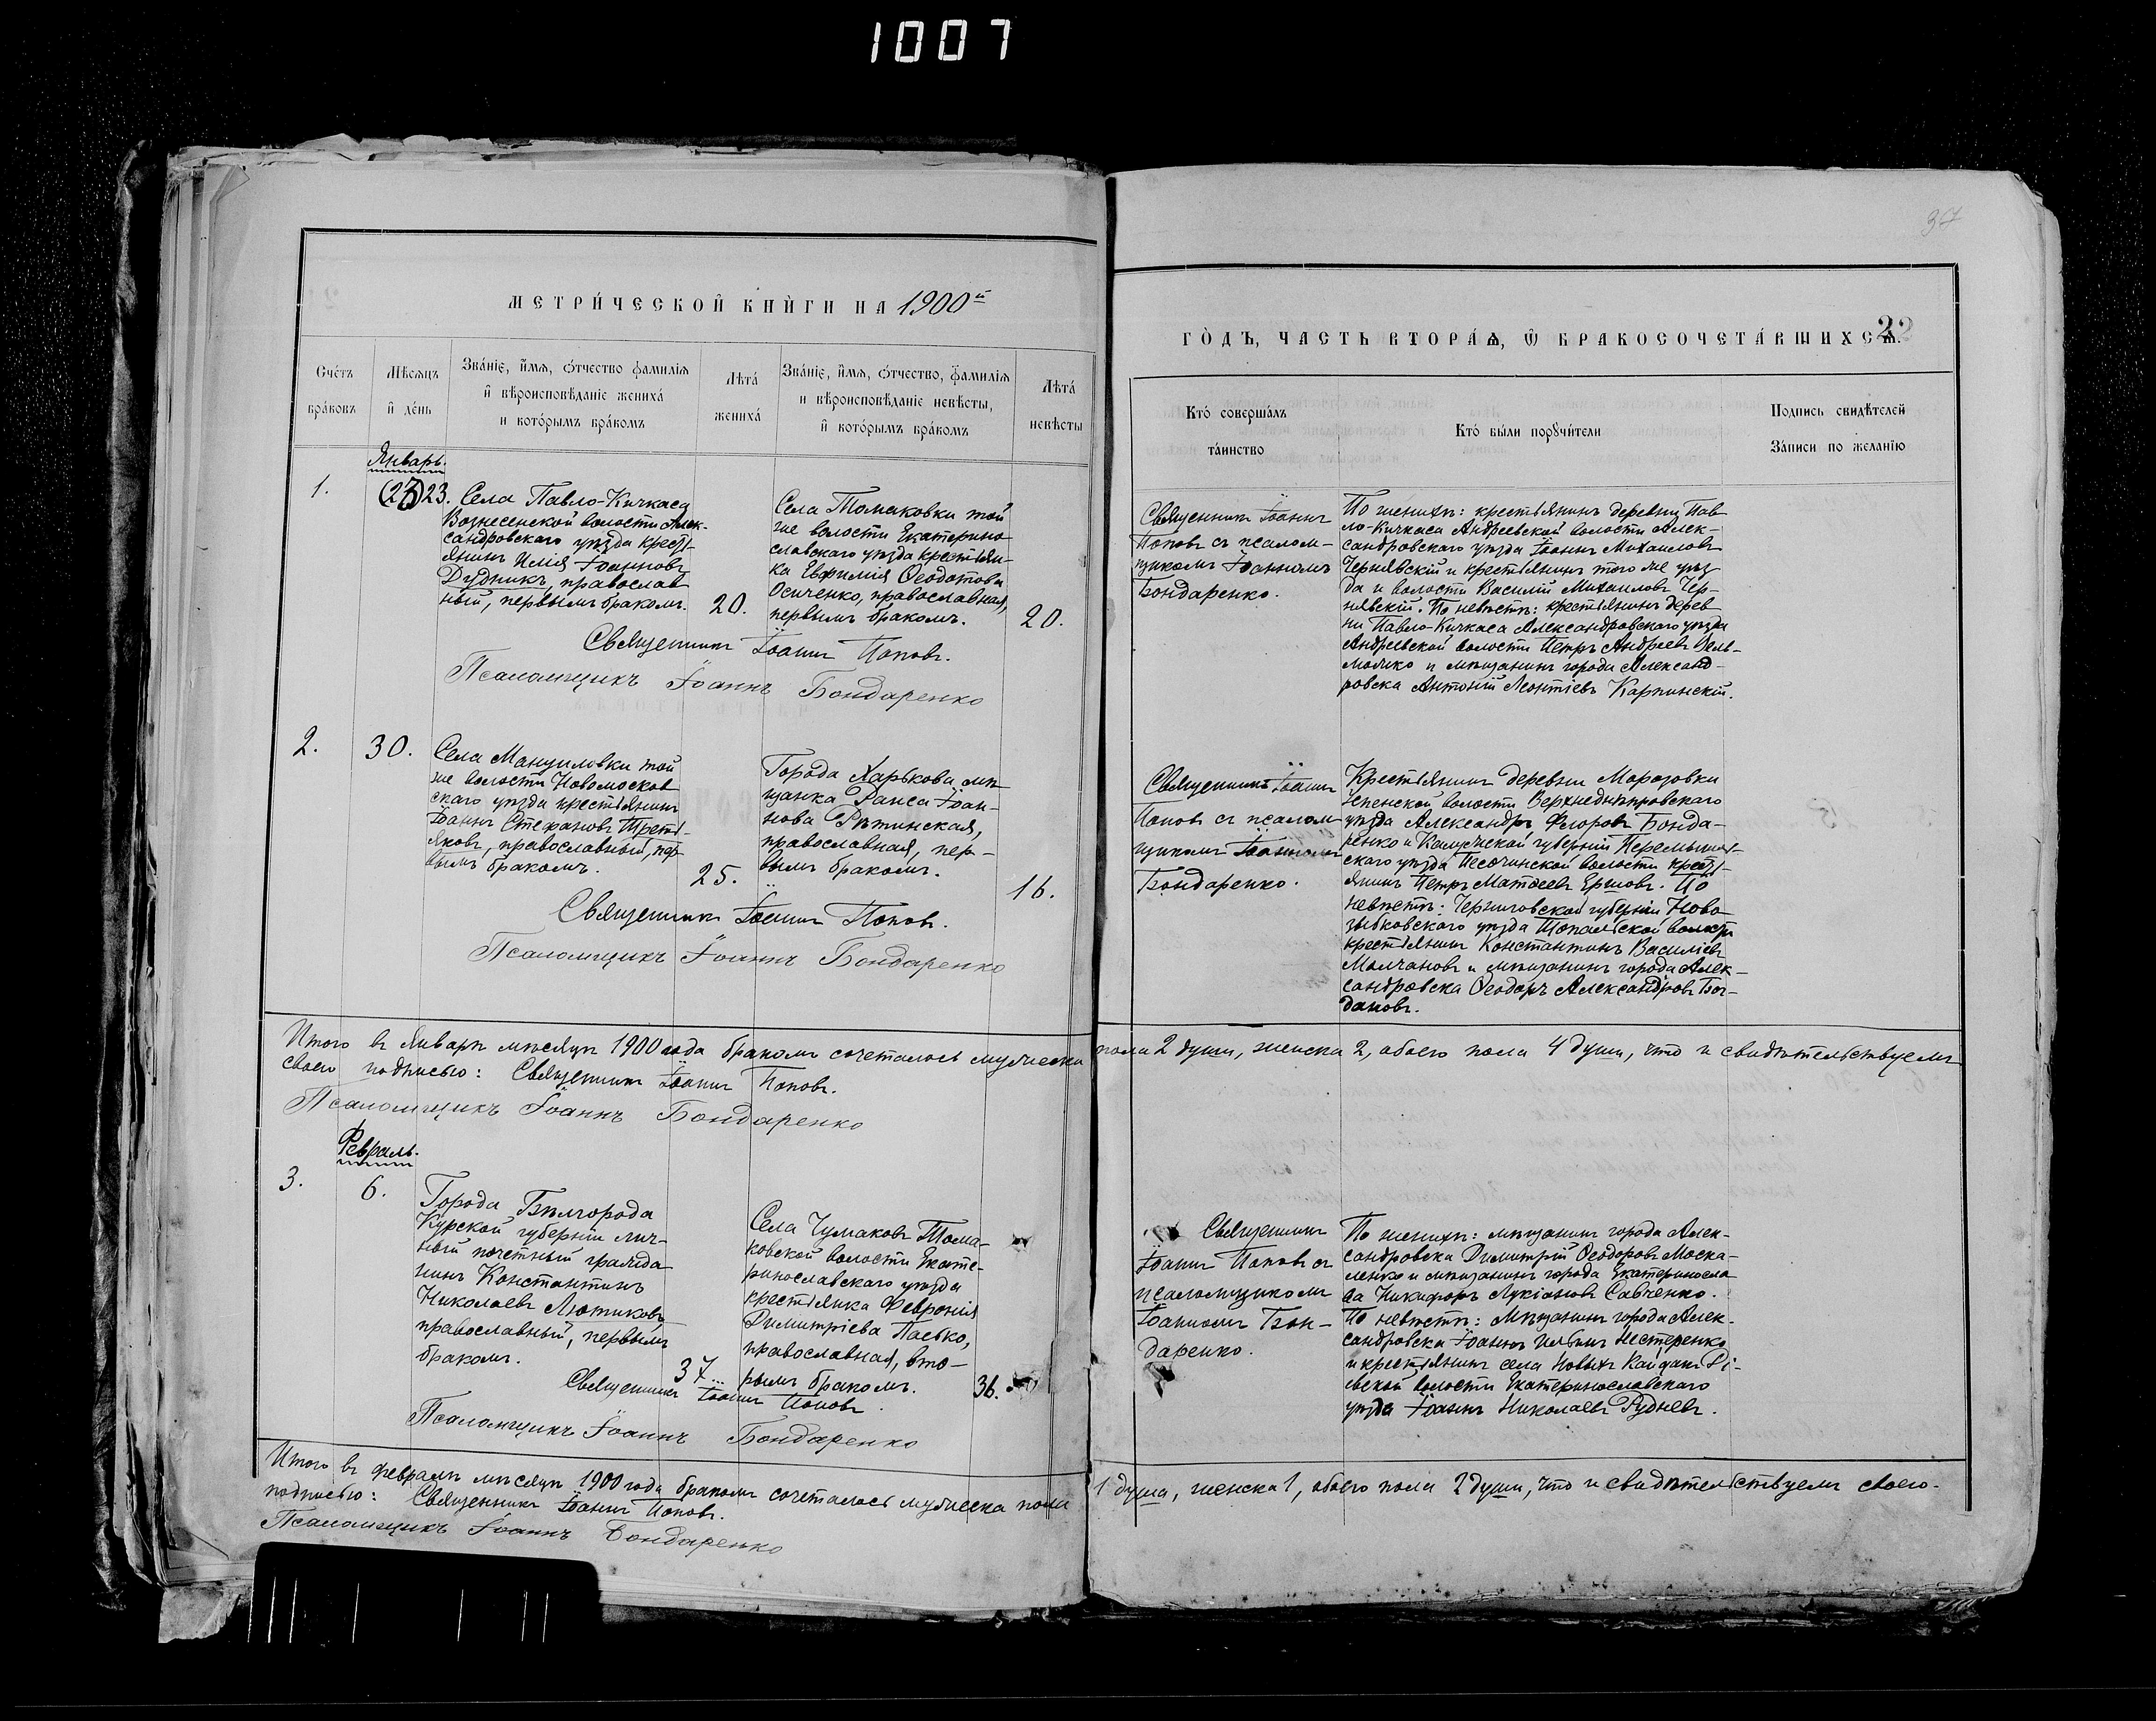 1007
37
МЕТРИ́ЧЕСКОЙ КНИ́ГИ НА 1900й
ГО́ДЪ, ЧАСТЬ ВТОРА́Ѧ, Ѡ БРАКОСОЧЕТА́ВШИХСѦ.
22
Сче́тъ бра́ковъ
Мѣ́сѧцъ и҆ де́нь
Зва́нїе, и҆́мѧ, ѻ҆́тчество фамилїѧ
и҆ вѣроисповѣ́данїе жениха́
и кото́рымъ бра́комъ
Лѣта́ жениха́
Зва́нїе, и҆́мѧ, ѻ҆́тчество, фамилїѧ
и вѣроисповѣ́данїе невѣ́сты,
и҆ кото́рымъ бра́комъ
Лѣта́ невѣ́сты
Кто́ соверша́лъ
та́инство
Кто́ бы́ли порꙋчи́тели
Подпись свидѣ́телей
За́писи по жела́нїю
Январь.
1.
23.
Села Павло-Кичкаса
Вознесенской волости Алек-
сандровскаго уѣзда кресть-
янинъ Илія Іоанновъ
Дудникъ, православ
ный, первымъ бракомъ.
20.
Села Томаковки той
же волости Екатерино
славскаго уѣзда крестьян-
ка Евфимія Ѳеодотова
Осиченко, православная,
первымъ бракомъ.
20.
Священникъ Іоаннъ Поповъ.
Псаломщикъ Іоаннъ Бондаренко
Священникъ Іоаннъ
Поповъ съ псалом-
щикомъ Іоанномъ
Бондаренко.
По женихѣ: крестьянинъ деревни Пав
ло-Кичкаса Андреевской волости Алек-
сандровскаго уѣзда Іоаннъ Михаиловъ
Чернявскій и крестьянинъ того же уѣз
да и волости Василій Михаиловъ Чер-
нявскій. По невѣстѣ: крестьянинъ дерев
ни Павло-Кичкаса Александровскаго уѣзда
Андреевской волости Петръ Андреевъ Вель-
можко и мѣщанинъ города Александ-
ровска Антоній Леонтіевъ Карпинскій.
2.
30.
Села Мануиловки той
же волости Новомосков
скаго уѣзда крестьянинъ
Іоаннъ Стефановъ Треть-
яковъ, православный, пер
вымъ бракомъ.
25.
Города Харькова мѣ
щанка Раиса Іоан-
нова Рѣтинская,
православная, пер-
вымъ бракомъ.
16.
Священникъ Іоаннъ Поповъ.
Псаломщикъ Іоаннъ Бондаренко
Священникъ Іоаннъ
Поповъ съ псалом
щикомъ Іоанномъ
Бондаренко.
Крестьянинъ деревни Морозовки
Успенской волости Верхнеднѣпровскаго
уѣзда Александръ Флоровъ Бонда-
ренко и Калужской губерніи Перемышль-
скаго уѣзда Песочинской волости кресть-
янинъ Петръ Матѳеевъ Ершовъ. По
невѣстѣ: Черниговской губерніи Ново
зыбковскаго уѣзда Топальской волости
крестьянинъ Константинъ Василіевъ
Молчановъ и мѣщанинъ города Алек-
сандровска Ѳеодоръ Александровъ Бог-
дановъ.
Итого въ Январѣ мѣсяцѣ 1900 года бракомъ сочеталось мужеска пола 2 души, женска 2, обоего пола 4 души, что и свидѣтельствуемъ
своею подписью: Священникъ Іоаннъ Поповъ.
Псаломщикъ Іоаннъ Бондаренко
Февраль.
3.
6.
Города Бѣлгорода
Курской губерніи лич-
ный почетный гражда
нинъ Константинъ
Николаевъ Лютиковъ
православный, первымъ
бракомъ.
37
Села Чумаковъ Тома-
ковской волости Екате-
ринославскаго уѣзда
крестьянка Февронія
Димитріева Пасько,
православная, вто-
рымъ бракомъ.
36.
Священникъ Іоаннъ Поповъ.
Псаломщикъ Іоаннъ Бондаренко
Священникъ
Іоаннъ Поповъ съ
псаломщикомъ
Іоанномъ Бон-
даренко.
По женихѣ: мѣщанинъ города Алек-
сандровска Димитрій Ѳеодоровъ Моска-
ленко и мѣщанинъ города Екатериносла
ва Никифоръ Лукіановъ Савченко.
По невѣстѣ: мѣщанинъ города Алек-
сандровска Іоаннъ Нестеренко
и крестьянинъ села Новыхъ Кайдакъ Ді-
евской волости Екатеринославскаго
уѣзда Іоаннъ Николаевъ Рудневъ.
Итого въ февралѣ мѣсяцѣ 1900 года бракомъ сочеталось мужеска пола 1 душа, женска 1, обоего пола 2 души, что и свидѣтельствуемъ своею
подписью: Священникъ Іоаннъ Поповъ.
Псаломщикъ Іоаннъ Бондаренко